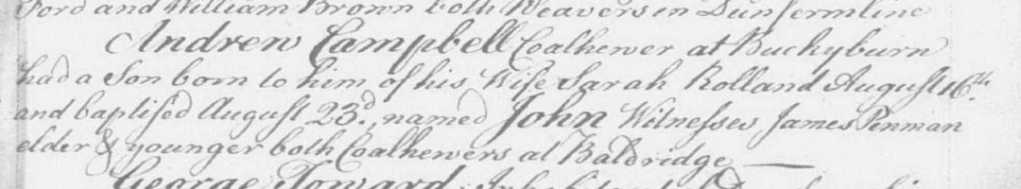 Ford and William Brown both Weavers in Dunfermline
Andrew Campbell Coalhewer at Buckyburn
had a Son born to him of his Wife Sarah Rolland August 16th.
and baptised August 23d., named John Witnesses James Penman
elder & younger both Coalhewers at Baldridge —
George Toward